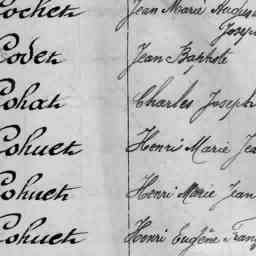 Cochet Jean Marie Augus
Joseph
Codet Jean Baptiste
Cohat Charles Joseph
Cohuet Henri Marie Jea
Cohuet Henri Marie Jean
Cohuet Henri Eugène Franç